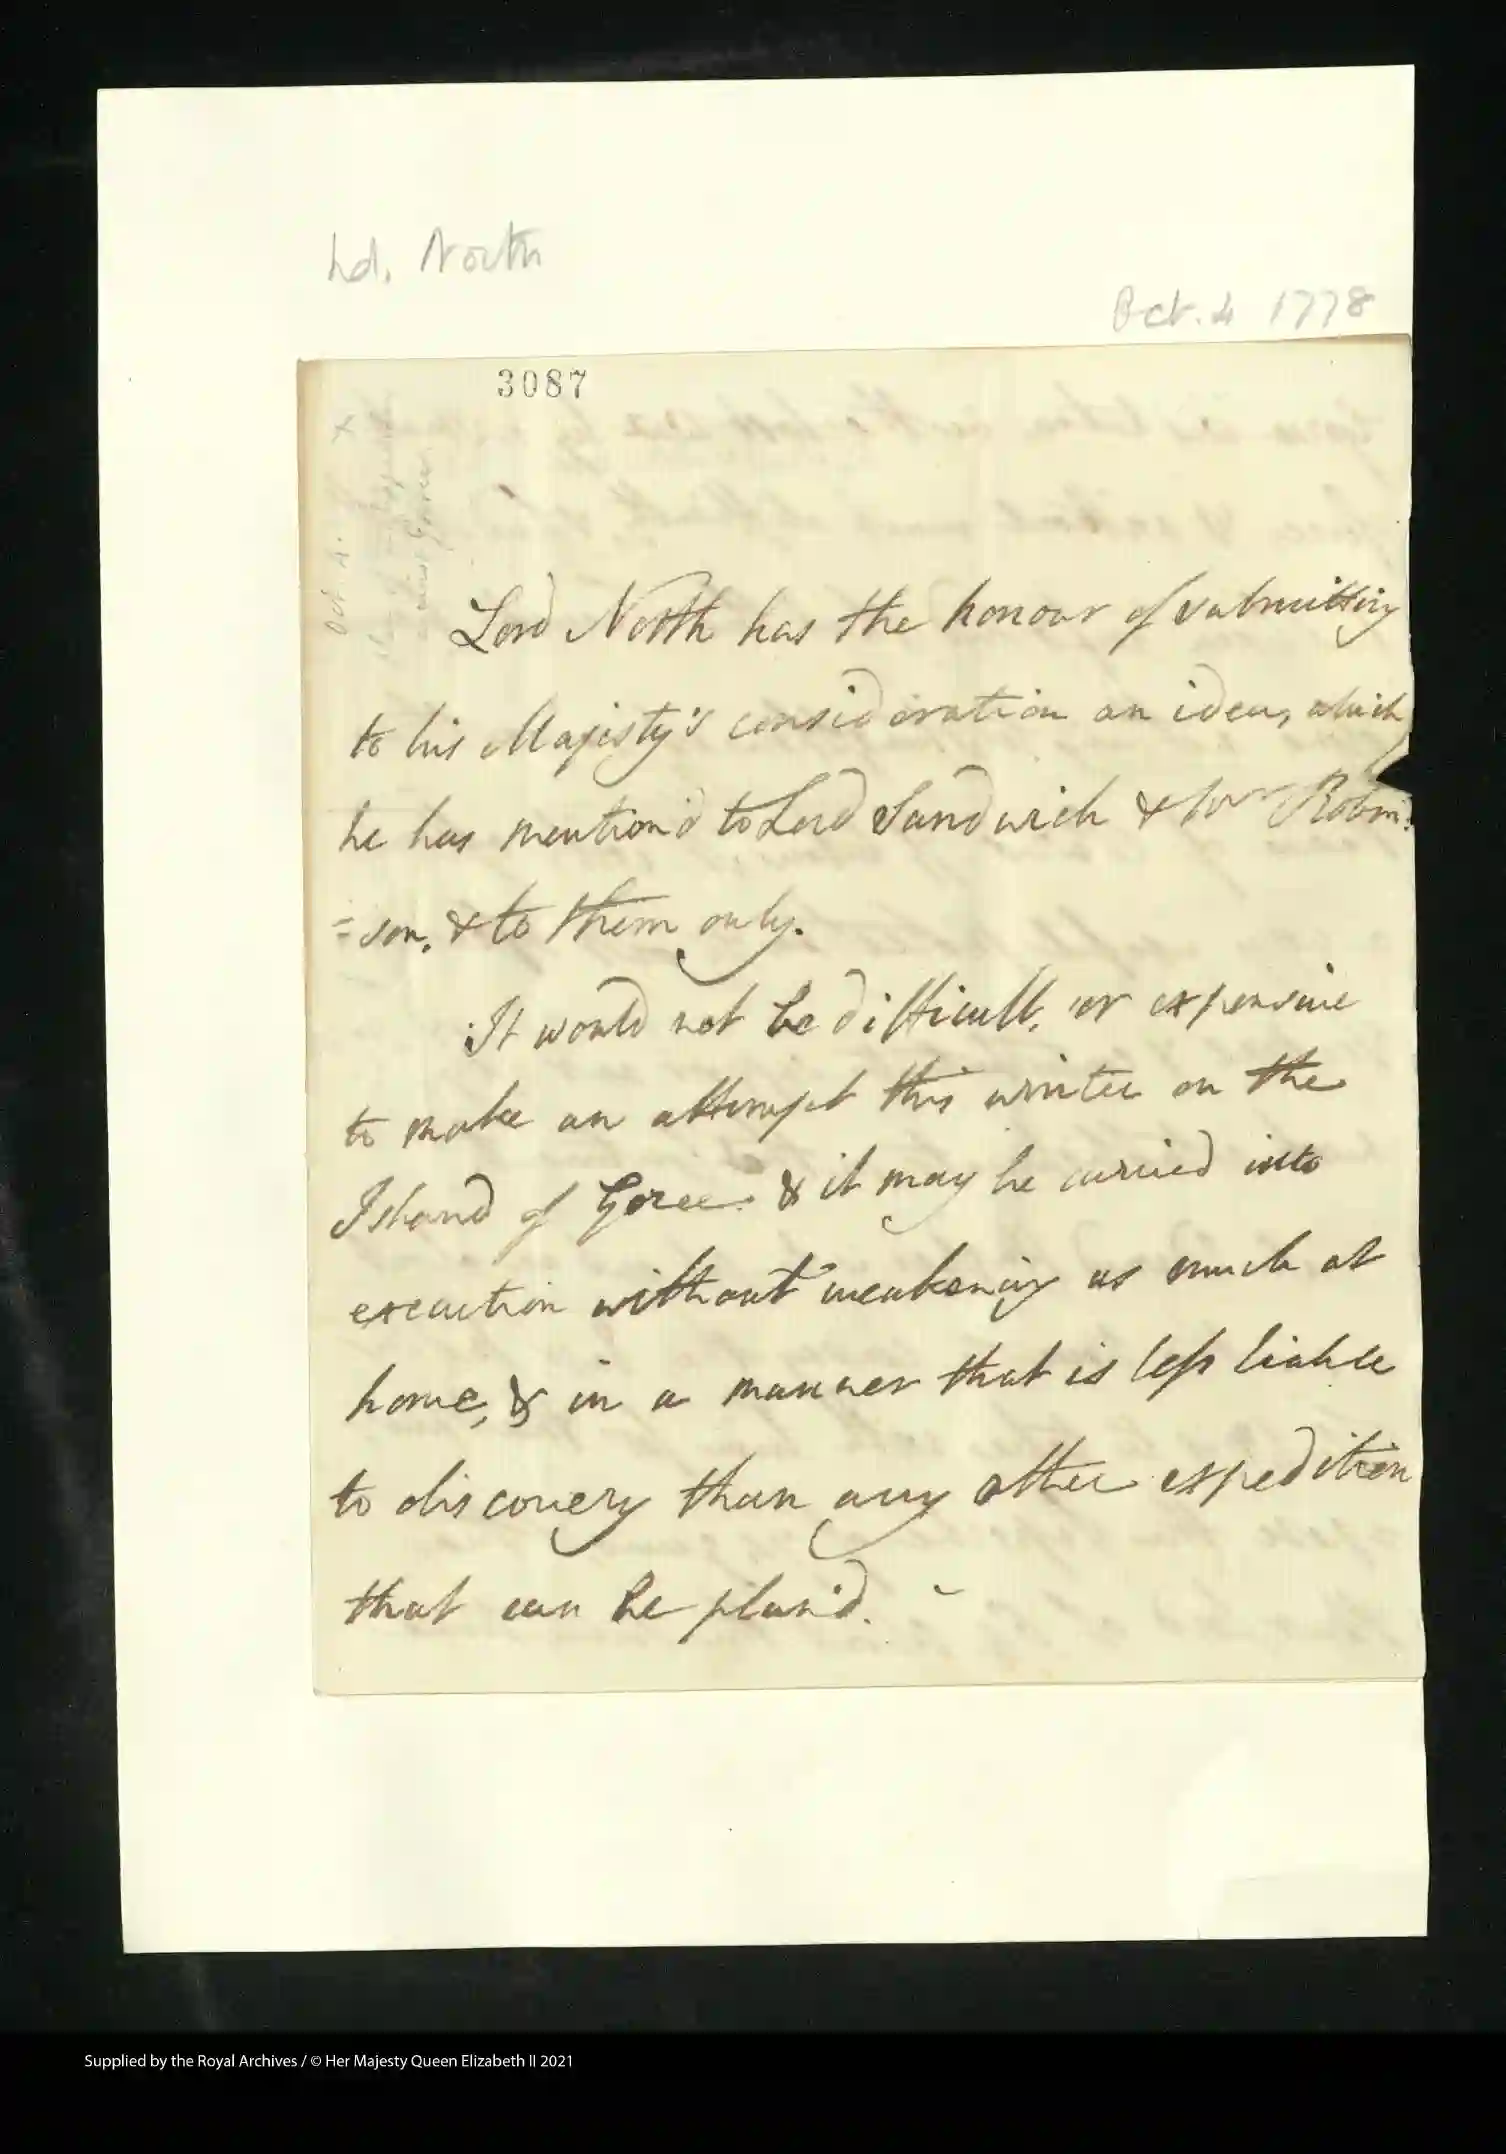 Ld. North
Oct. 4 1778
3087
Oct. 4.
against Goree.
Lord North has the honour of submitting
to his Majesty's consideration an idea, which
he has mention'd to Lord Sandwich & Mr Robin:
=son, & to them only.
It would not be difficult, or expensive
to make an attempt this winter on the
Island of Goree & it may be carried into
execution without weakening us much at
home, & in a manner that is less liable
to discovery than any other expedition
that can be plan'd. -
Supplied by the Royal Archives / © Her Majesty Queen Elizabeth II 2021